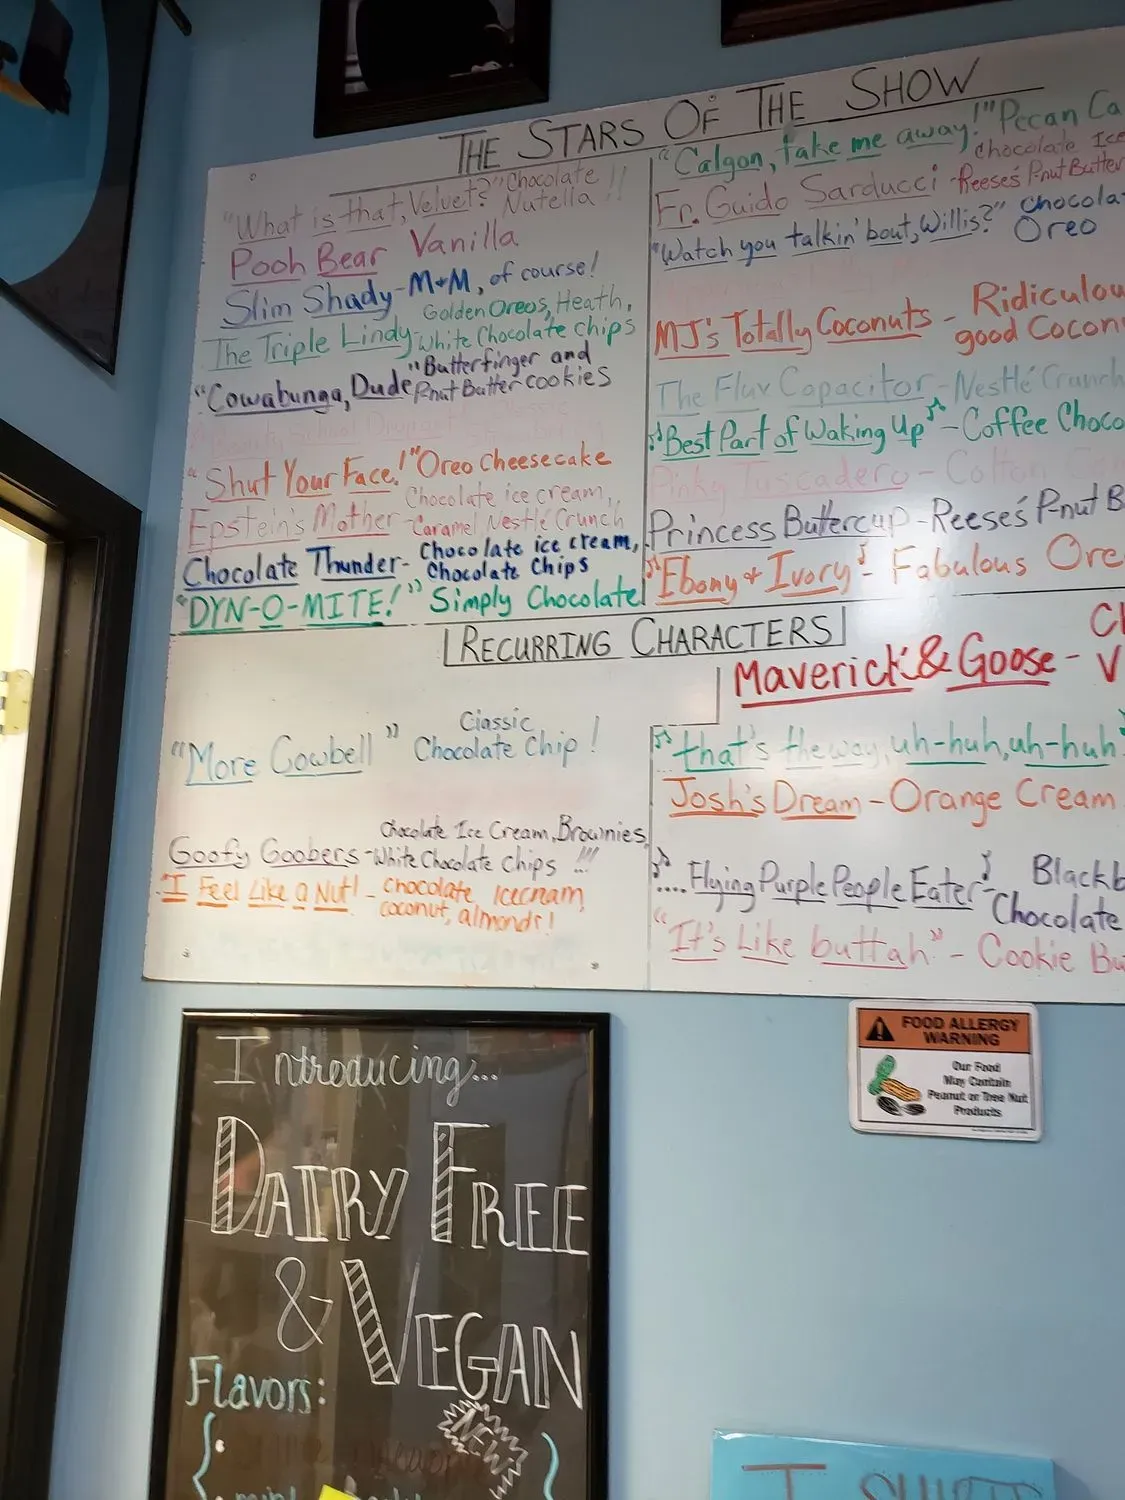 THE STARS OF THE SHOW
"What is that, Velvet?" Chocolate
Nutella !!
Pooh Bear Vanilla
Slim Shady - M+M, of course!
The Triple Lindy - Golden Oreos, Heath,
White Chocolate chips
"Cowabunga, Dude" Butterfinger and
P-nut Butter cookies
"Shut Your Face!" Oreo Cheesecake
Epstein's Mother - Chocolate ice cream,
Caramel, Nestlé Crunch
Chocolate Thunder - Chocolate ice cream,
Chocolate Chips
"DYN-O-MITE!" Simply Chocolate
"Calgon, take me away!" Pecan Ca
Fr. Guido Sarducci - Chocolate Ice
Reese's P-nut Butter
"Watch you talkin' bout, Willis?" Chocola
Oreo
MJ's Totally Coconuts - Ridiculou
good Cocon
The Flux Capacitor - Nestlé Crunch
♫Best Part of Waking Up♫ - Coffee Choco
Pinky Tuscadero - Cotton
Princess Buttercup - Reese's P-nut B
♫Ebony + Ivory♪ - Fabulous Ore
RECURRING CHARACTERS
"More Cowbell" Classic
Chocolate Chip!
Goofy Goobers - Chocolate Ice Cream, Brownies,
White Chocolate chips !!!
"I Feel Like a Nut! - chocolate icecream,
coconut, almonds!
Maverick & Goose - Ch
V
♫that's the way, uh-huh, uh-huh♫
Josh's Dream - Orange Cream
♫.... Flying Purple People Eater♪ - Blackb
Chocolate
"It's Like buttah" - Cookie Bu
FOOD ALLERGY
WARNING
Our Food
May Contain
Peanut or Tree Nut
Products
Introducing...
DAIRY FREE
& VEGAN
Flavors:
NEW